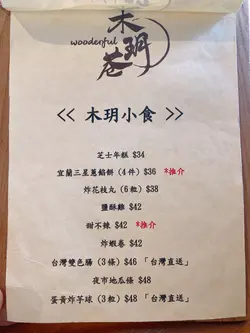 木玥巷
woodenful
<< 木玥小食 >>
芝士年糕 $34
宜蘭三星蔥餡餅 (4件) $36 *推介
炸花枝丸 (6粒) $38
鹽酥雞 $42
甜不辣 $42 *推介
炸蝦卷 $42
台灣雙色腸 (3條) $46 「台灣直送」
夜市地瓜條 $48
蛋黃炸芋球 (3粒) $48 「台灣直送」